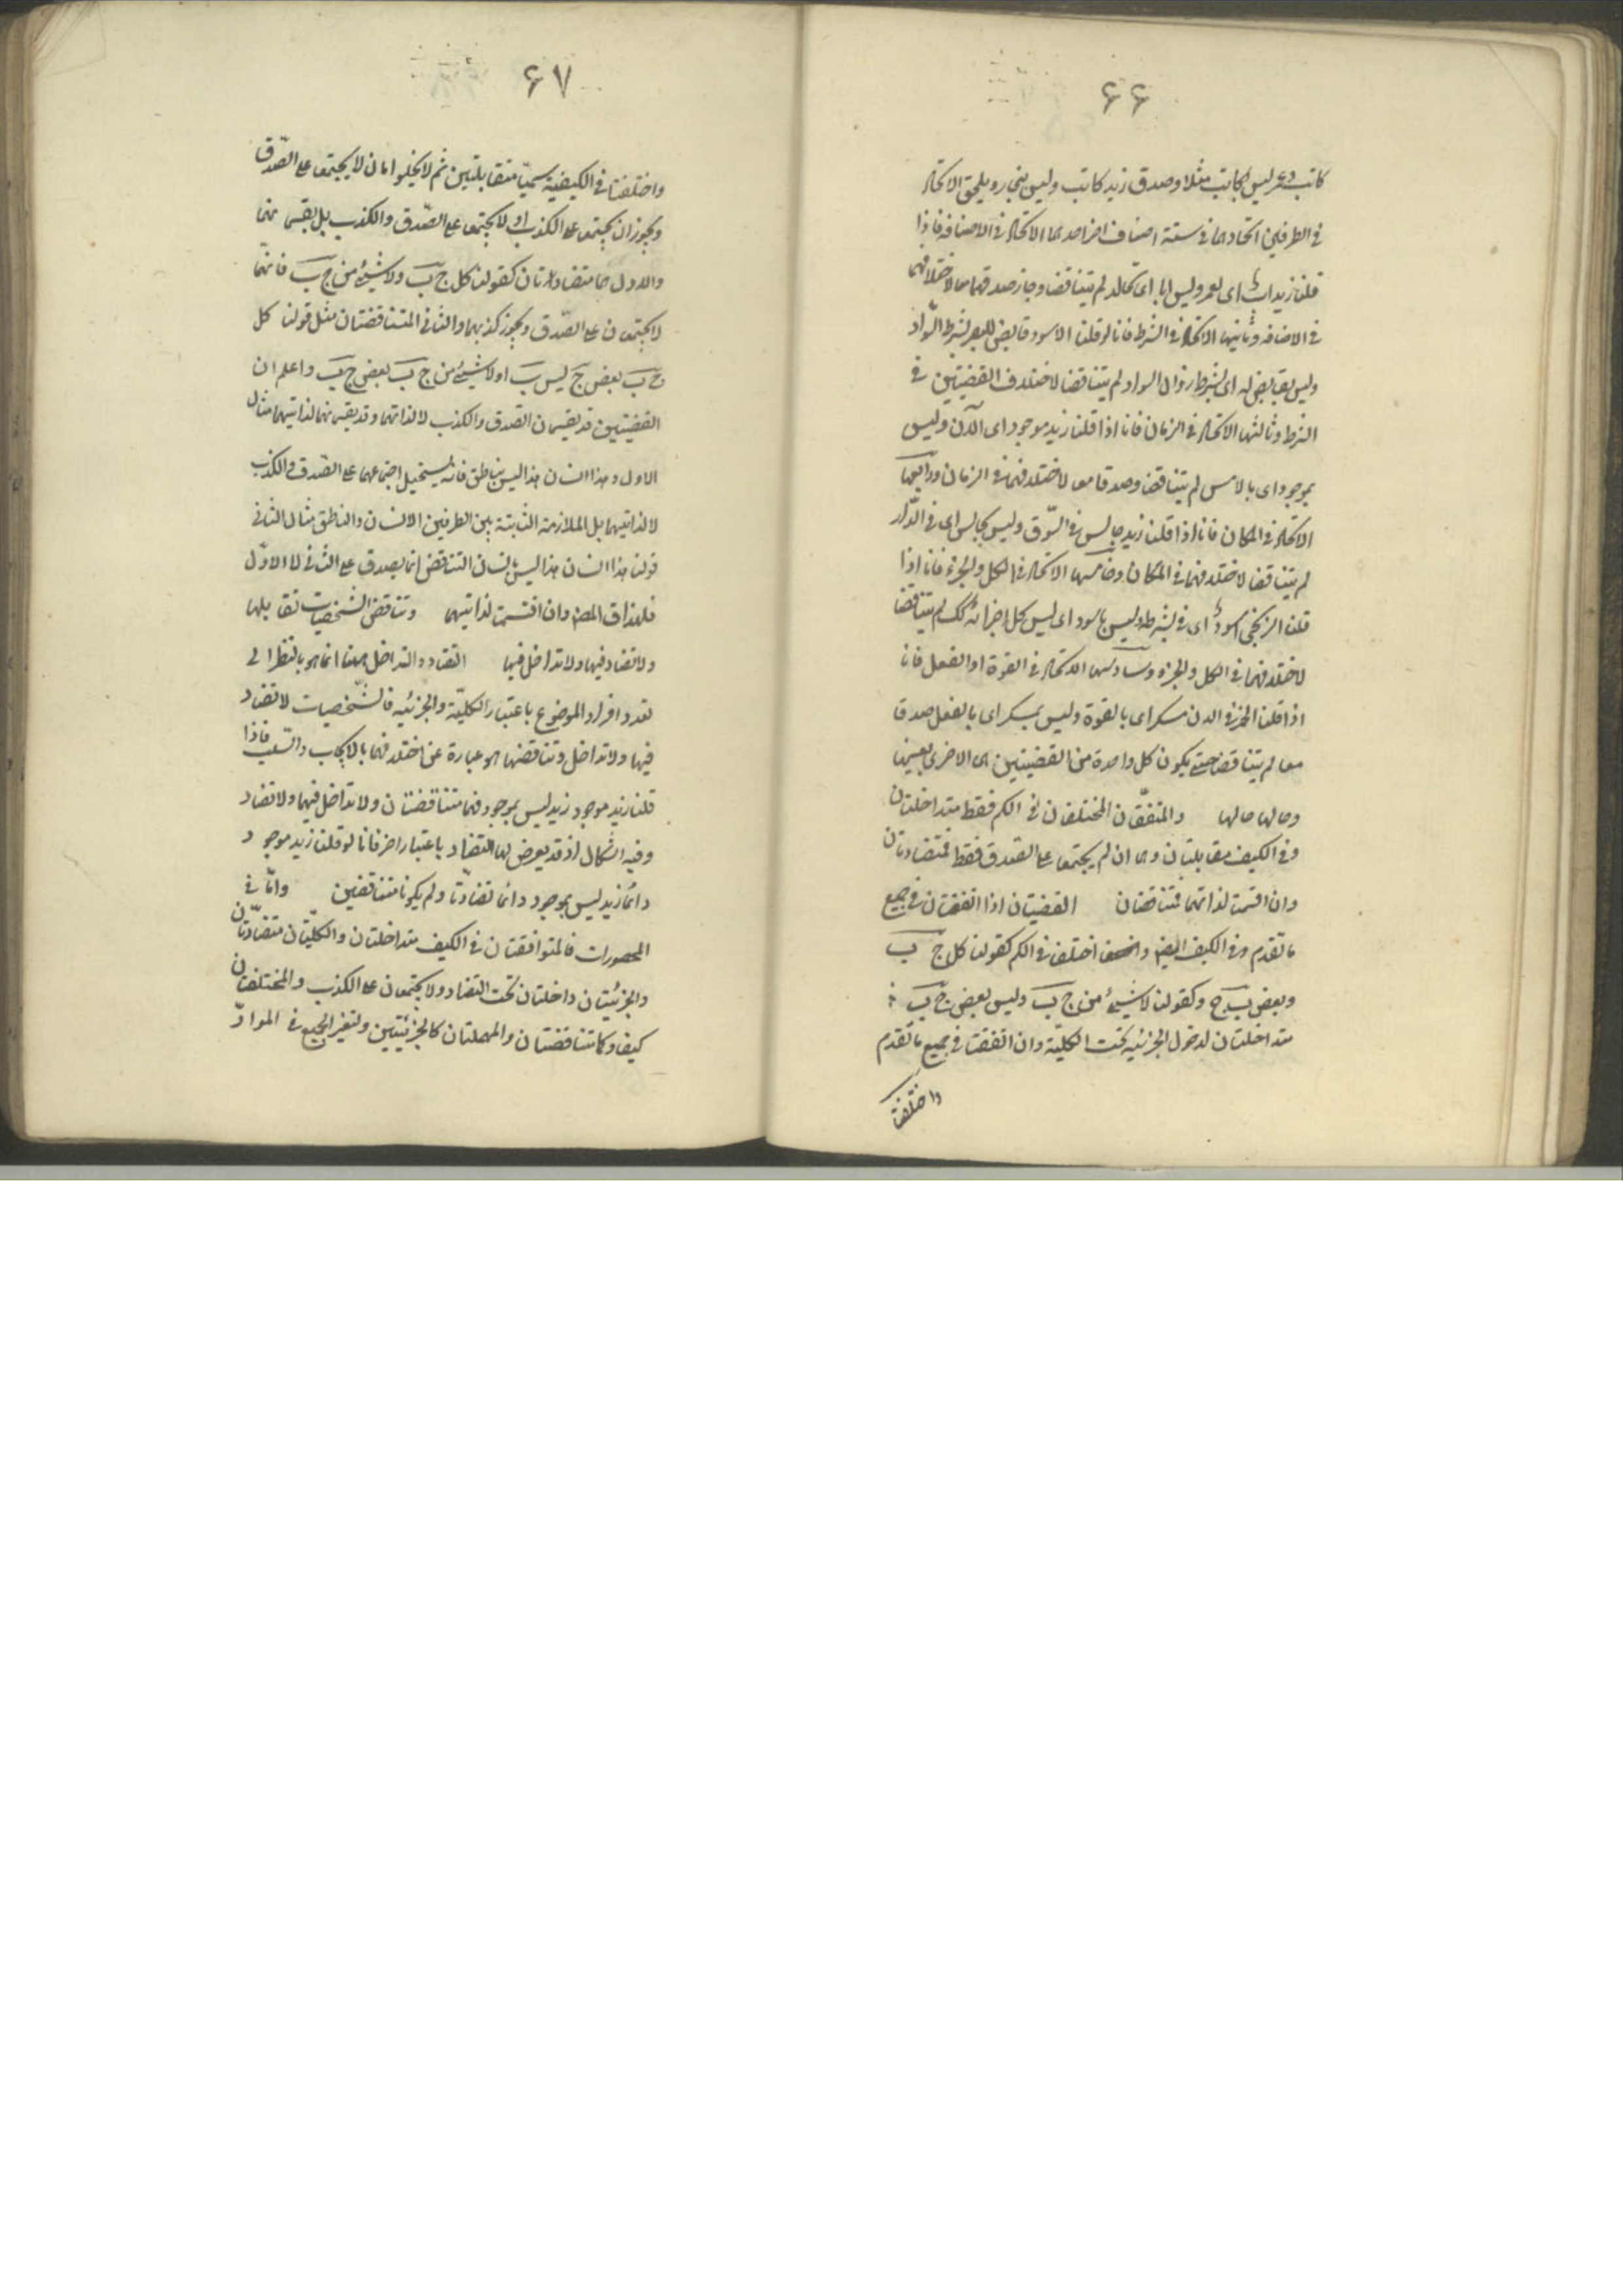 ۶۶
كاتب وعمرو ليس بكاتب مثلا وصدق زيد كاتب وليس بنجار ويلحق الاتحاد
في الطرفين اتحادهما في ستة اصناف اخر احدها الاتحاد في الاضافة فاذا
قلنا زيد اب اى لعمرو وليس ابا اى لخالد لم يتناقضا وجاز صدقهما معا لاختلافهما
في الاضافه وثانيها الاتحاد في الشرط فانا لو قلنا الاسود قابض للبصر بشرط السواد
وليس بقابض له اى بشرط زوال السواد لم يتناقضا لاختلاف القضيتين في
الشرط وثالثها الاتحاد في الزمان فانا اذا قلنا زيد موجود اى الآن وليس
بموجود اى بالامس لم يتناقضا وصدقا معا لاختلافهما في الزمان ورابعها
الاتحاد في المكان فانا اذا قلنا زيد جالس في السّوق وليس بجالس اى في الدّار
لم يتناقضا لاختلافهما في المكان وخامسها الاتحاد في الكل والجزء فانا اذا
قلنا الزنجي اسود اى في بشرطه وليس باسود اى ليس كل اجزائه كك لم يتناقضا
لاختلافهما في الكل والجزء وسادسها الاتحاد في القوة او الفعل فانا
اذا قلنا الخمر في الدن مسكر اى بالقوة وليس بمسكر اى بالفعل صدقا
معا لم يتناقضا حتى يكون كل واحدة من القضيتين هى الاخرى بعينها
وحالها حالها والمتفقتان المختلفتان في الكم فقط متداخلتان
وفي الكيف متقابلتان وهما ان لم يجتمعا على الصدق فقط فمتضادتان
وان اقتسمتا لذاتهما فتناقضان القضيتان اذا اتفقتا في جميع
ما تقدم وفي الكيف ايضا واختلفتا في الكم كقولنا كل ج ب
وبعض ب ج وكقولنا لا شيئ من ج ب وليس بعض ج ب
متداخلتان لدخول الجزئيه تحت الكليّة وان اتفقتا في جميع ما تقدم
واختلفتا
۶۷
واختلفتا في الكيفية سميّتا متقابلتين ثم لا يخلوا اما ان لا يجتمعا على الصّدق
ويجوز ان يجتمعا على الكذب او لا يجتمعا على الصّدق والكذب بل يقتسمانهما
والاول هما متضادتان كقولنا كل ج ب ولا شيئ من ج ب فانهما
لا يجتمعان على الصّدق ويجوز كذبهما والثاني المتناقضتان مثل قولنا كل
ج ب بعض ج ليس ب او لا شيئ من ج ب بعض ج ب واعلم ان
القضيتين قد يقتسمان الصدق والكذب لا لذاتهما وقد يقتسمانهما لذاتيهما مثال
الاول هذا انسان هذا ليس بناطق فانه يستحيل اجتماعهما على الصّدق والكذب
لا لذاتيهما بل للملازمة الثابتة بين الطرفين الانسان والناطق مثال الثاني
قولنا هذا انسان هذا ليس بانسان التناقض انما يصدق على الثاني لا الاوّل
فلهذا قال المص وان اقتسمتا لذاتيهما وتناقض الشخصيات تقابلها
ولا تضاد فيها ولا تداخل فيها التضاد والتداخل ههنا انما هو بالنظر الى
تعدد افراد الموضوع باعتبار الكليّة والجزئيه فالشّخصيات لا تضاد
فيها ولا تداخل وتناقضها هو عبارة عن اختلافهما بالايجاب والسّلب فاذا
قلنا زيد موجود زيد ليس بموجود فهما متناقضتان ولا تداخل فيهما ولا تضاد
وفيه اشكال اذ قد يعرض لها التضاد باعتبار اخر فانا لو قلنا زيد موجود
دائما زيد ليس بموجود دائما تضادّتا ولم يكونا متناقضين وامّا في
المحصورات فالمتوافقتان في الكيف متداخلتان والكليّتان متضادّتان
والجزئيّتان داخلتان تحت التضاد ولا يجتمعان على الكذب والمختلفتان
كيفا وكما متناقضتان والمهملتان كالجزئيّتين وتعتبر الجميع في الموادّ